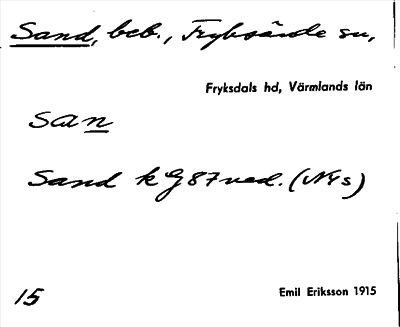 Sand, beb., Fryksände sn,
Fryksdals hd, Värmlands län
san
Sand k G 87 ved. (N4s)
15
Emil Eriksson 1915